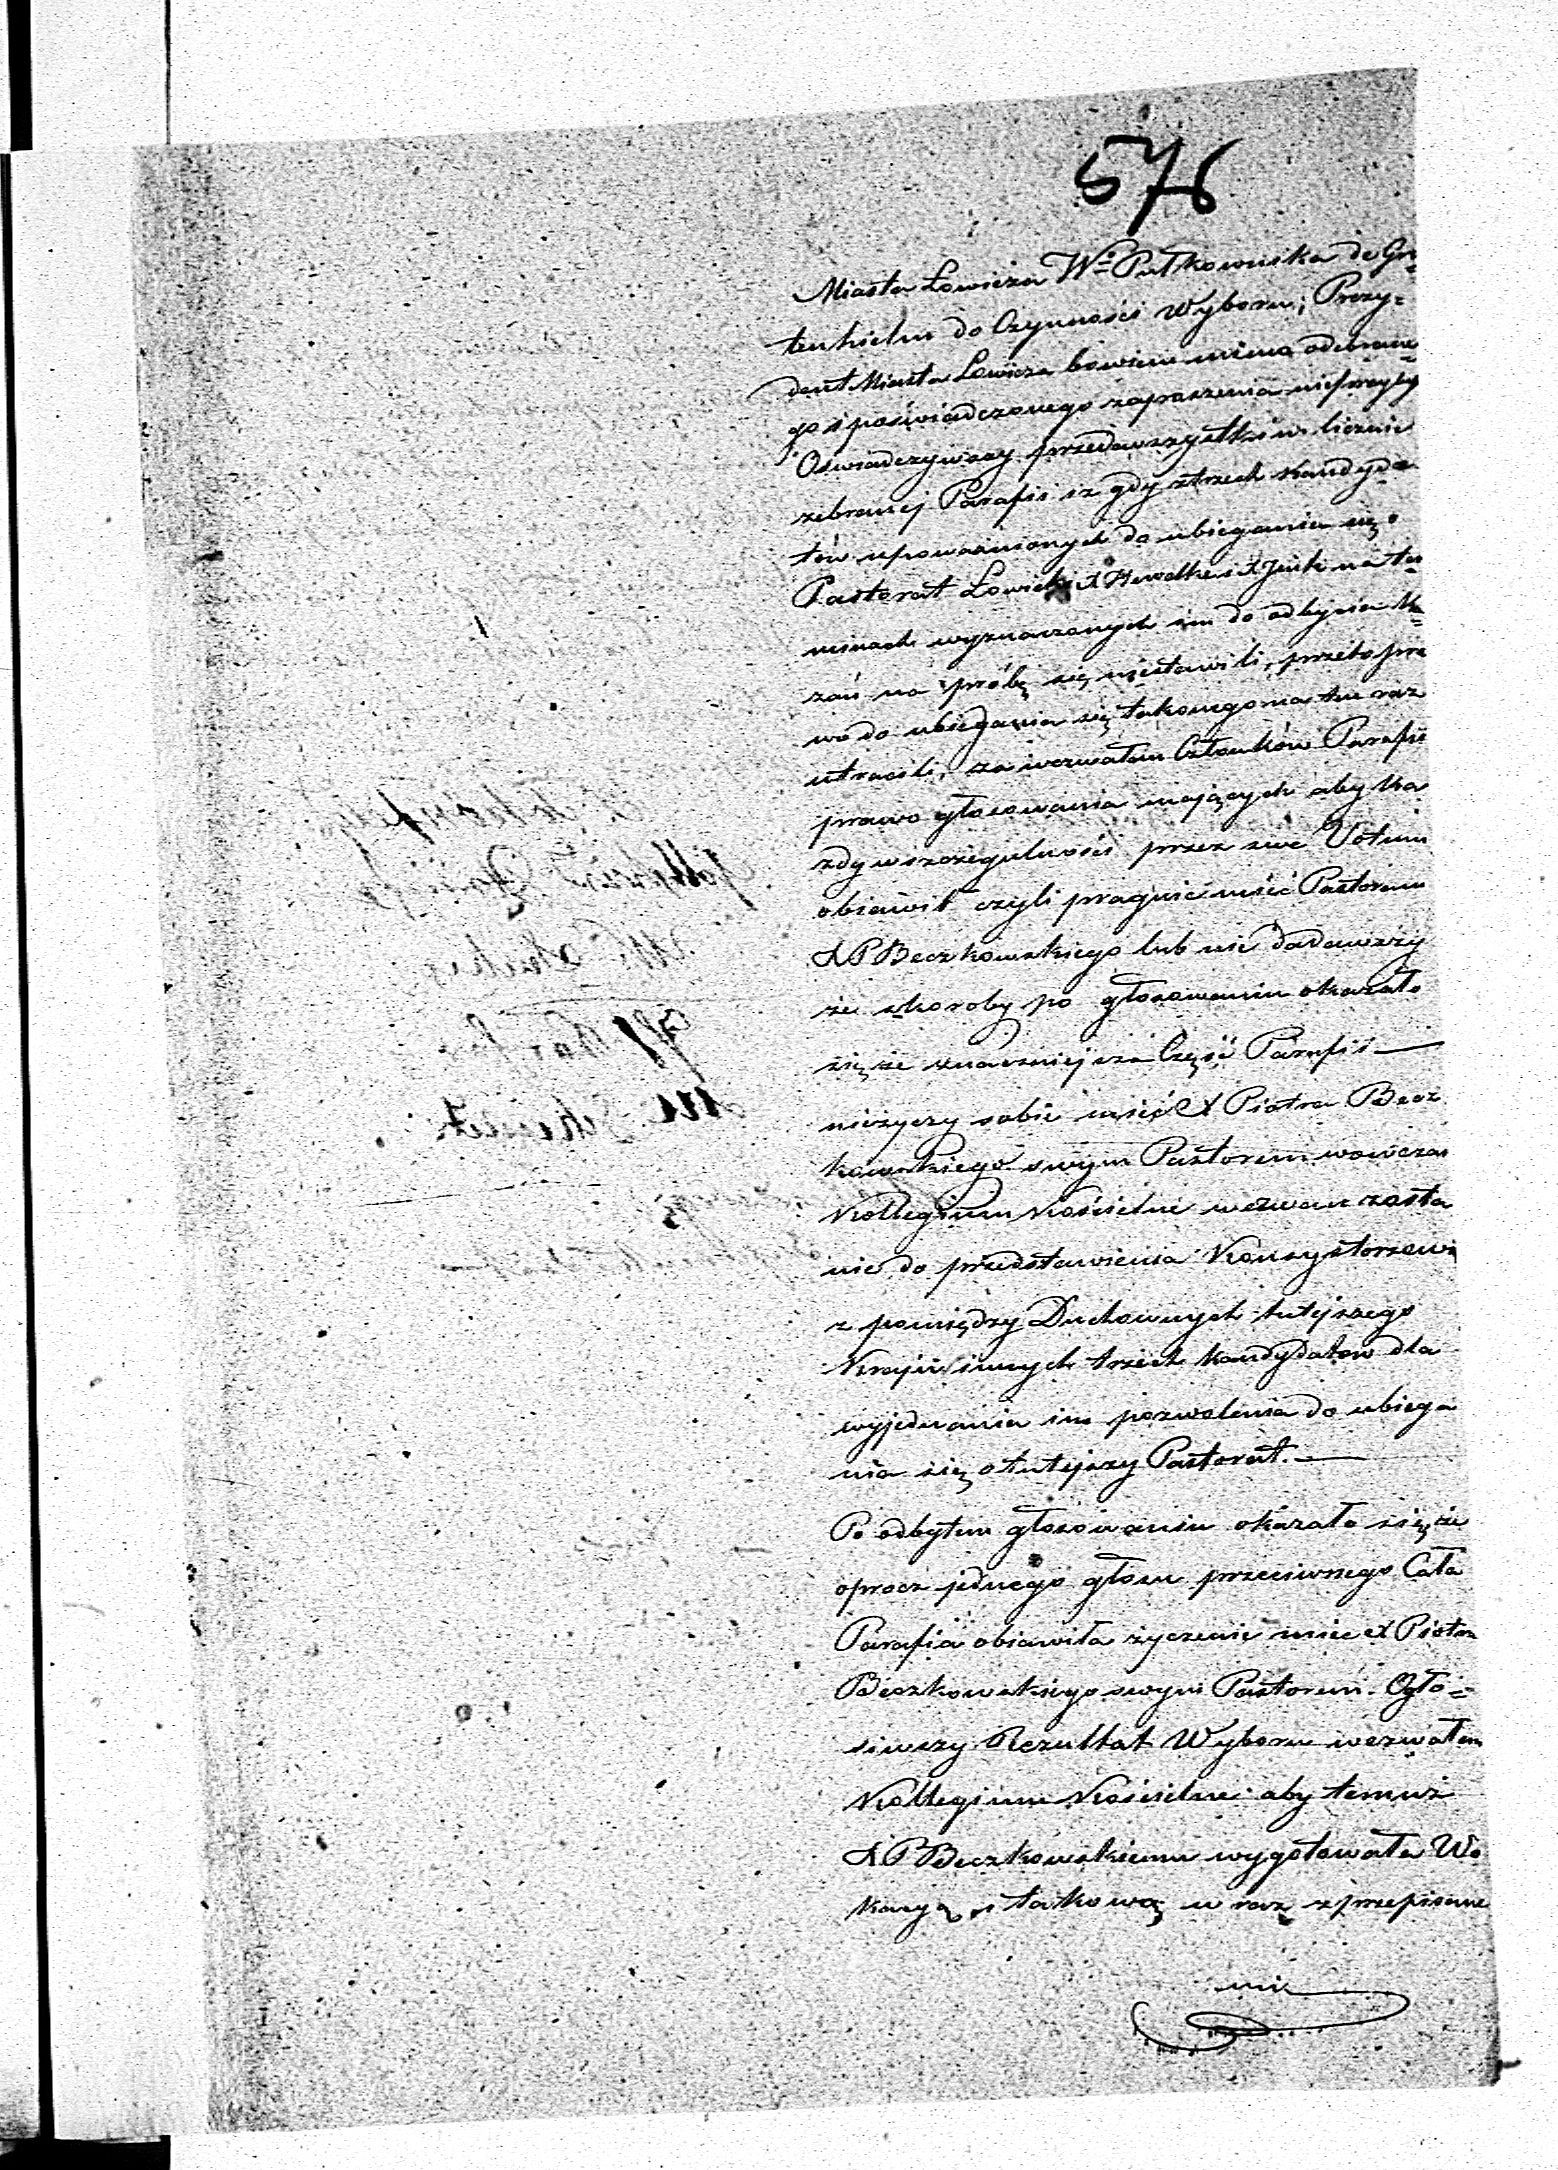 576
Miasta Łowicza Wo Pułkownika de Gro=
tenhielm do Czynności Wyboru; Prezy=
dent Miasta Łowicza bowiem mimo odebrane=
go i poświadczonego zaproszenia nieprzybył
Oświadczywszy przedewszystkiem licznie
zebranej Parafii iż gdy z trzech Kandyda=
tów upoważnionych do ubiegania się o
Pastorat Łowicki X i X na ter=
minach wyznaczonych im do odbycia Ka=
zań na próbę się niestawili, przeto pra
wo do ubiegania się takowego na ten raz
utracili, zawezwałem Członków Parafii
prawo głosowania mających aby Ka
żdy w szczegulności przez swe Votum
obiawił czyli pragnie mieć Pastorem
X P Beczkowskiego lub nie dodawszy
że skoroby po głosowaniu okazało
się że znaczniejsza Część Parafii
nieżyczy sobie mieć X Piotra Becz
kowskiego swym Pastorem wowczas
Kollegium Kościelne wezwane zosta
nie do przedstawienia Konsystorzowi
z pomiędzy Duchownych tutejszego
Kraju innych trzech Kandydatow dla
wyjednania im pozwolenia do ubiega
nia się o tutejszy Pastorat.
Po odbytem głosowaniu okazało się że
oprocz jednego głosu przeciwnego Cała
Parafia obiawiła życzenie miec X Piotra
Beczkowskiego swym Pastorem. Ogło=
siwszy Rezultat Wyboru wezwałem
Kollegium Kościelne aby temuż
X P Beczkowskiemu wygotowała Wo
kacyą, i takową w raz z przepisane
mi